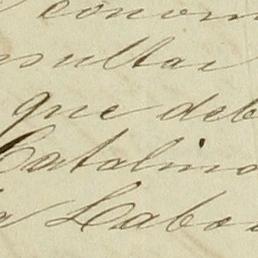 econom
nsultar
que deb
Catalino
a Labo